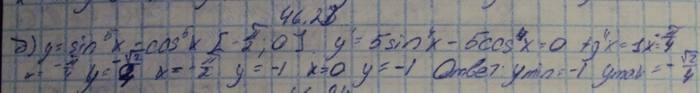 46.28
б) y = sin⁵x - cos⁵x [-π/2; 0] y' = 5sin⁴x - 5cos⁴x = 0 tg⁴x = 1 x = -π/4
x = -π/4 y = -√2/4 x = -π/2 y = -1 x = 0 y = -1 Ответ: ymin = -1 ymax = -√2/4